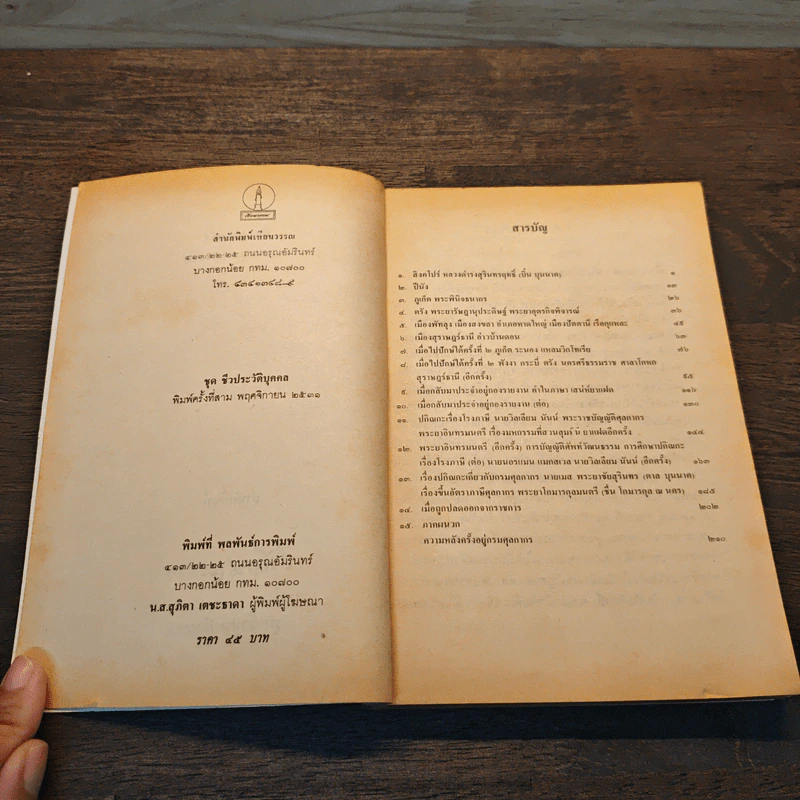 สำนักพิมพ์เขียนวรรณ
๔๑๓/๒๒-๒๕ ถนนอรุณอัมรินทร์
บางกอกน้อย กทม. ๑๐๗๐๐
โทร. ๔๓๔๑๓๔๘-๙
ชุด ชีวประวัติบุคคล
พิมพ์ครั้งที่สาม พฤศจิกายน ๒๕๓๑
พิมพ์ที่ พลพันธ์การพิมพ์
๔๑๓/๒๒-๒๕ ถนนอรุณอัมรินทร์
บางกอกน้อย กทม. ๑๐๗๐๐
น.ส.สุภิตา เตชะธาดา ผู้พิมพ์ผู้โฆษณา
ราคา ๔๕ บาท
สารบัญ
๑. สิงคโปร์ หลวงดำรงสุรินทรฤทธิ์ (บึ่น บุนนาค) ๑
๒. ปีนัง ๑๓
๓. ภูเก็ต พระพินิจธนากร ๒๖
๔. ตรัง พระยารัษฎานุประดิษฐ์ พระยาอุตรกิจพิจารณ์ ๓๖
๕. เมืองพัทลุง เมืองสงขลา อำเภอหาดใหญ่ เมืองปัตตานี เรือคุณพละ ๔๕
๖. เมืองสุราษฎร์ธานี อ่าวบ้านดอน ๖๓
๗. เมื่อไปปักษ์ใต้ครั้งที่ ๒ ภูเก็ต ระนอง แหลมวิกโทเรีย ๗๖
๘. เมื่อไปปักษ์ใต้ครั้งที่ ๒ พังงา กระบี่ ตรัง นครศรีธรรมราช ศาลาโตหก
สุราษฎร์ธานี (อีกครั้ง) ๙๕
๙. เมื่อกลับมาประจำอยู่กองรายงาน คำในภาษา เสน่ห์ยาแฝด ๑๑๖
๑๐. เมื่อกลับมาประจำอยู่กองรายงาน (ต่อ) ๑๓๐
๑๑. ปกิณกะเรื่องโรงภาษี นายวิลเลียม นันน์ พระราชบัญญัติศุลกากร
พระยาอินทรมนตรี เรื่องมหกรรมที่สวนลุมพินี ยาแฝดอีกครั้ง ๑๔๔
๑๒. พระยาอินทรมนตรี (อีกครั้ง) การบัญญัติศัพท์วัฒนธรรม การศึกษาปกิณกะ
เรื่องโรงภาษี (ต่อ) นายนอรแมน แมกสเวล นายวิลเลียม นันน์ (อีกครั้ง) ๑๖๓
๑๓. เรื่องปกิณกะเกี่ยวกับกรมศุลกากร นายเมส พระยาชัยสุรินทร (ตาล บุนนาค)
เรื่องขึ้นอัตราภาษีศุลกากร พระยาโกมารกุลมนตรี (ชื่น โกมารกุล ณ นคร) ๑๘๕
๑๔. เมื่อถูกปลดออกจากราชการ ๒๐๒
๑๕. ภาคผนวก
ความหลังครั้งอยู่กรมศุลกากร ๒๑๐